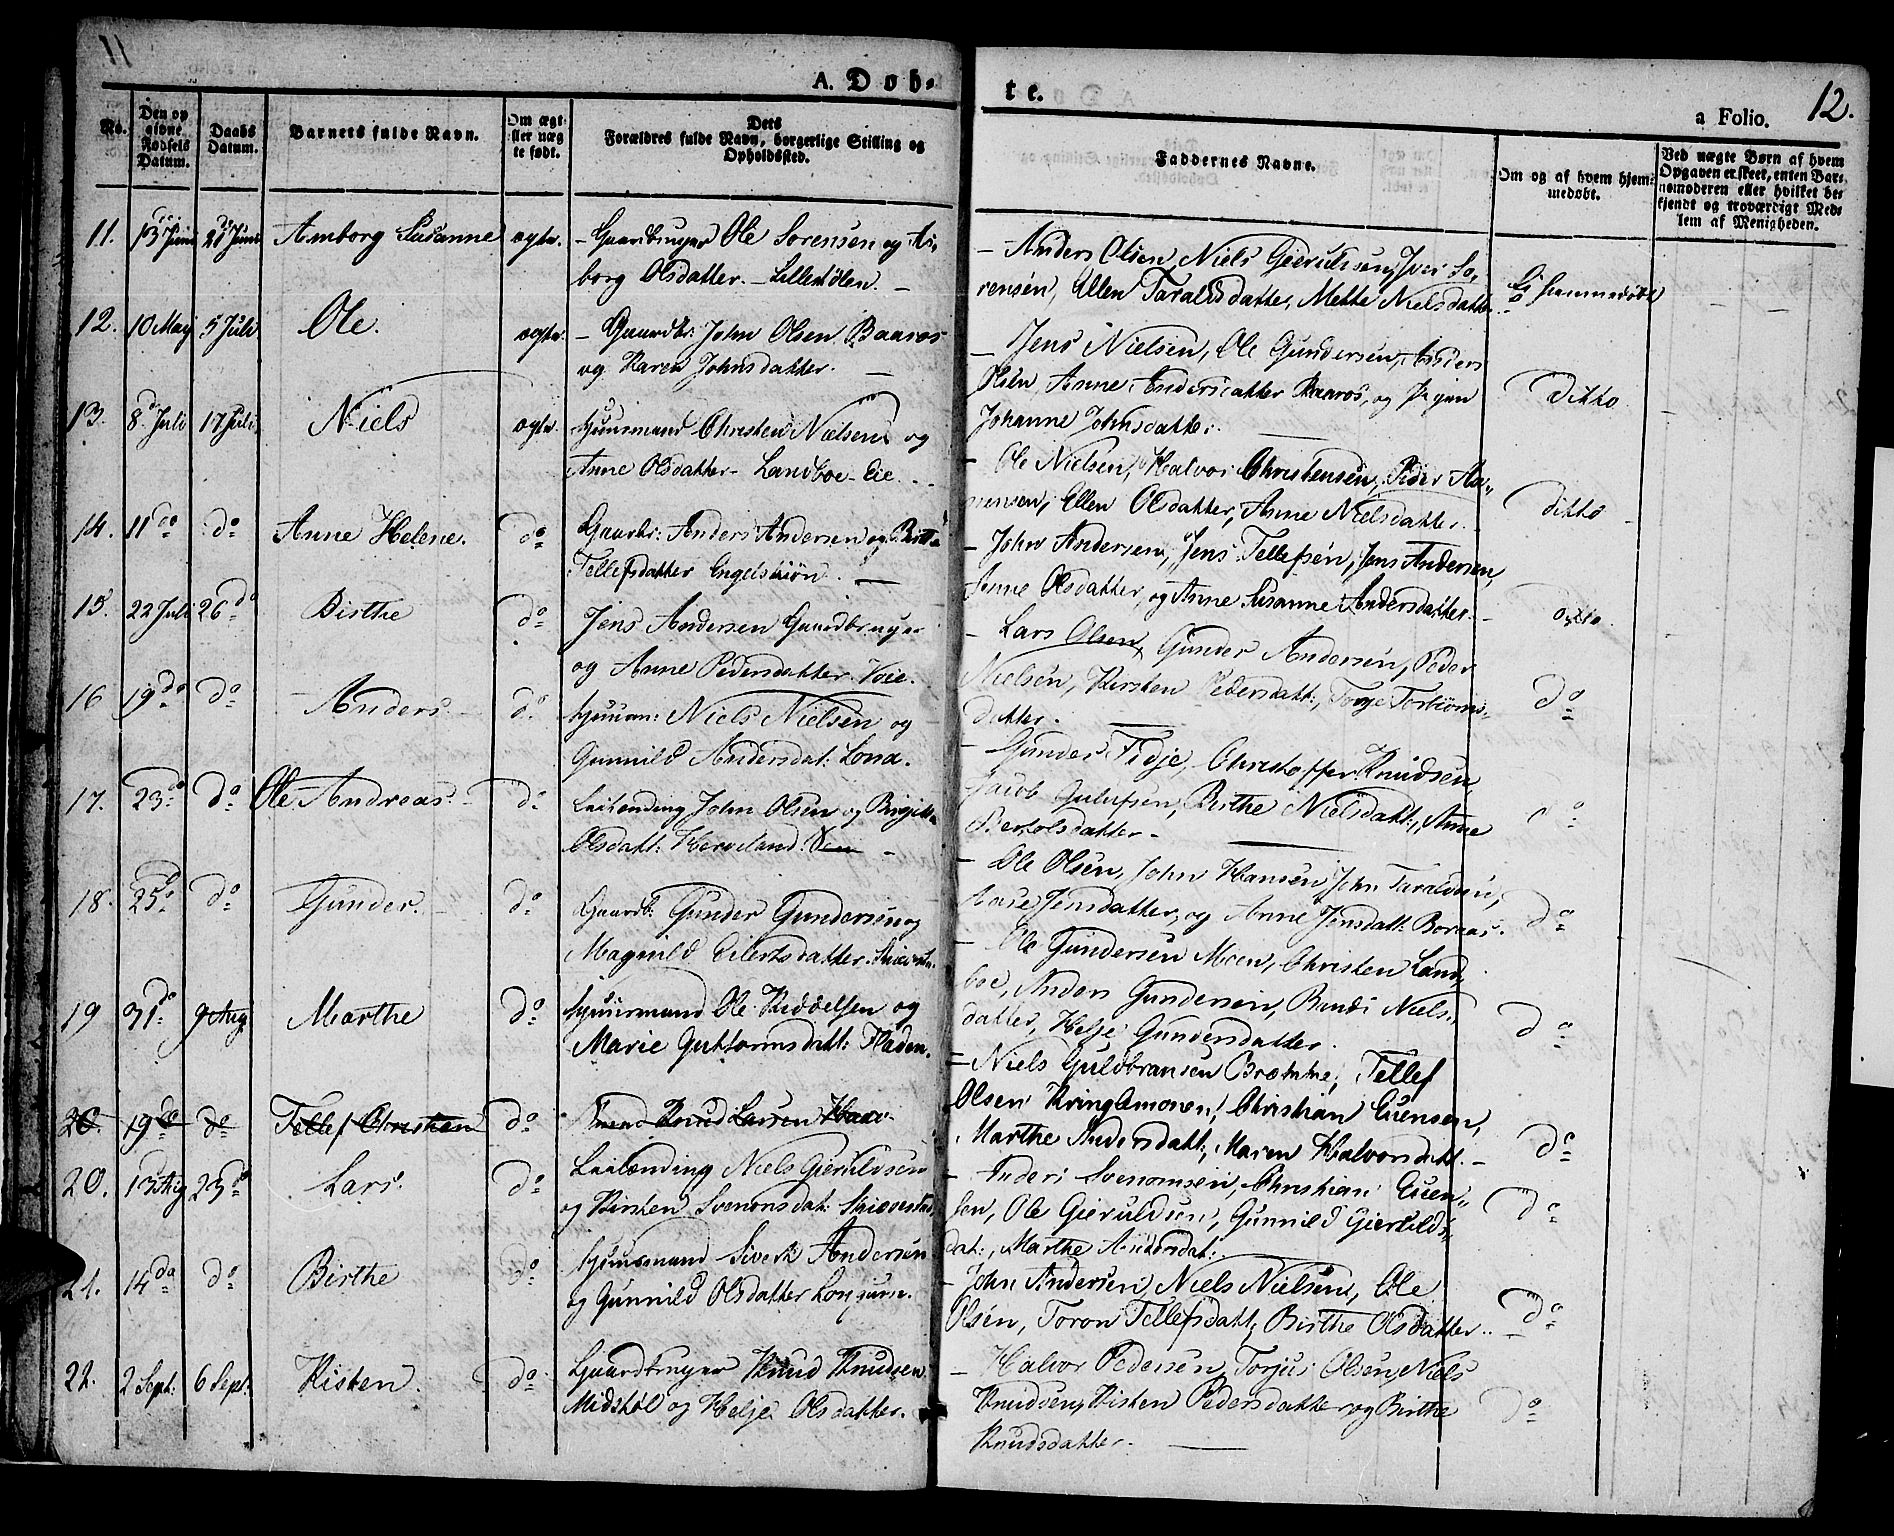 11
A. Døb-
te.
a Folio. 12.
No.
Den op
givne
Fødsels
Datum.
Daabs
Datum.
Barnets fulde Navn.
Om ægte
eller uæg
te født.
Dets
Forældres fulde Navn, borgerlige Stilling og
Opholdssted.
Faddernes Navne.
Om og af hvem hjem-
medøbt.
Ved uægte Børn af hvem
Opgaven er skeet, enten Bar-
nemoderen eller hvilket be-
kjendt og troværdigt Med-
lem af Menigheden.
11. 13 Juni 21 Juni Amborg Susanne ægte. - Gaardbruger Ole Sorensen og As,
borg Olsdatter. - Lillehölen. -
- Anders Olsen, Niels Gierulfsen, Iver So,
rensen, Ellen Taraldsdatter, Mette Nielsdatter.
Ei hjemmedøbt
12. 10 May 5 Juli Ole. ægte. - Gaardbr: John Olsen Baaros
og Karen Johnsdatter. -
- Jens Nielsen, Ole Gundersen, Anders
Olsen, Anne Andersdatter Baaros, og Pigen
Johanne Johnsdatter.
Ditto
13. 8 Juli 17 Juli Niels ægte. Huusmand Christen Nielsen og
Anne Olsdatter - Landboe-Eie.
- Ole Nielsen, Halvor Christensen, Peder
Ellen Olsdatter, Anne Nielsdatter. -
ditto
14. 11 do do Anne Helene. do Gaardbr: Anders Andersen og
Tellefsdatter Engelshiön. -
- John Andersen, Jens Tellefsen, Jens Andersen,
Anne Olsdatter, og Anne Susanne Andersdatter. -
ditto
15. 22 Juli 26 do Birthe do Jens Andersen Gaardbruger
og Anne Pedersdatter Voie.
- Lars Olsen, Gunder Andersen, Peder
Nielsen, Kirsten Pedersdatt:, Torje Torbiörns-
datter.
do
16 19 do do Anders. do Huusm: Niels Nielsen og
Gunnild Andersdat: Lona.
- Gunder Fidje, Christoffer Knudsen,
Jacob Julufsen, Birthe Nielsdatt:, Anne
Bertolsdatter -
do
17. 23 do do Ole Andreas. do Leilending John Olsen og Birgitte
Olsdatt: Herveland.
- Ole Olsen, John Hansen, John Taraldsen,
Aase Jensdatter, og Anne Jensdatt: Boraas.
do
18. 25 do do Gunder. do Gaardb: Gunder Gundersen og
Magnild Eilertsdatter.
- Ole Gundersen Moen, Christen Land,
boe, Anders Gundersen, Niels-
datter, Helje Gundersdatter.
do
19 31 do 9 Aug Marthe do Huusmand Ole Kiddelsen og
Marie Guttormsdatt: Haden.
- Niels Guldbransen Bromme, Tellef
Olsen Kringlemoren, Christian Evensen,
Marthe Andersdatt:, Maren Halvorsdatt. -
do
20. 19 do do Tellef Christian do Knud Larsen
20. 13 Aug 23 do Lars. do Leilænding Niels Gieruldsen
og Kirsten Svenomsdat: Skiævestad.
- Anders Svenomsen, Christian Even-
sen, Ole Gieruldsen, Gunnild Gierulds-
dat:, Marthe Andersdat:
do
21. 14 do do Birthe do Huusmand Sivert Andersen
og Gunnild Olsdatter
- John Andersen, Niels Nielsen, Ole
Olsen, Toron Tellefsdatt: Birthe Olsdatter.
do
22. 2 Sept: 6 Sept: Kisten. do Gaardbruger Knud Knudsen
Midstöl og Helje Olsdatter.
- Halvor Pedersen, Torjus Olsen, Niels
Knudsen, Kisten Pedersdatter og Birthe
Knudsdatter. -
do